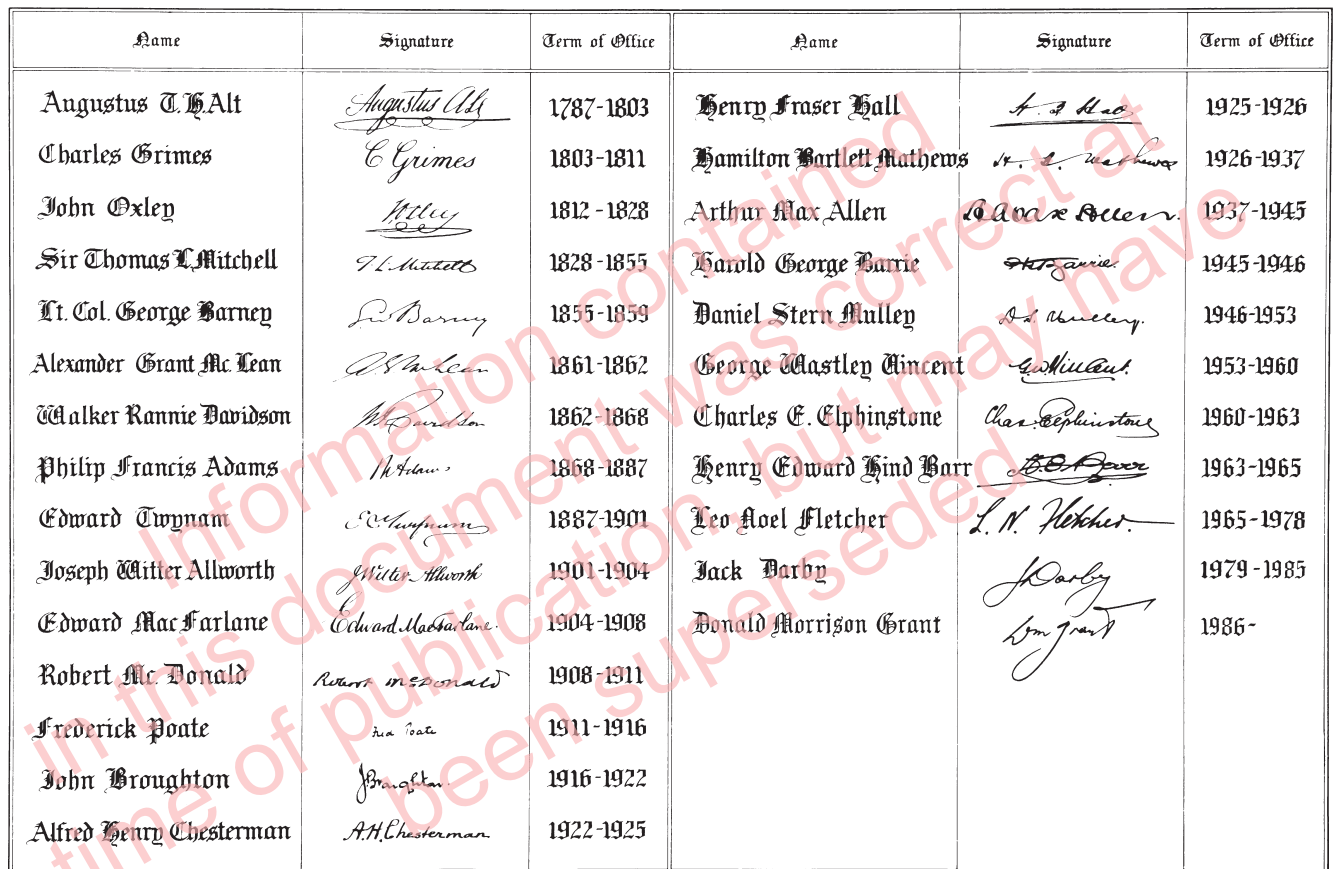 Name Signature Term of Office
Augustus T. H Alt Augustus Alt 1787-1803
Charles Grimes C Grimes 1803-1811
John Oxley 1812-1828
Sir Thomas L Mitchell T L Mitchell 1828-1855
Lt. Col. George Barney Geo Barney 1855-1859
Alexander Grant Mc. Lean 1861-1862
Walker Rannie Davidson W R Davidson 1862-1868
Philip Francis Adams P F Adams 1868-1887
Edward Twynam E Twynam 1887-1901
Joseph Witter Allworth J Witter Allworth 1901-1904
Edward Mac Farlane Edward MacFarlane. 1904-1908
Robert Mc. Donald Robert McDonald 1908-1911
Frederick Poate Fred Poate 1911-1916
John Broughton J Broughton. 1916-1922
Alfred Henry Chesterman A.H. Chesterman 1922-1925
Name Signature Term of Office
Henry Fraser Hall H F Hall 1925-1926
Hamilton Bartlett Mathews H. B. Mathews 1926-1937
Arthur Max Allen A Max Allen. 1937-1945
Harold George Barrie H G Barrie. 1945-1946
Daniel Stern Mulley D S Mulley. 1946-1953
George Wastley Vincent G W Vincent. 1953-1960
Charles E. Elphinstone Chas. Elphinstone 1960-1963
Henry Edward Hind Barr 1963-1965
Leo Noel Fletcher L. N. Fletcher. 1965-1978
Jack Darby J Darby 1979-1985
Donald Morrison Grant Dm Grant 1986-
Information contained
in this document was correct at
time of publication, but may have
been superseded